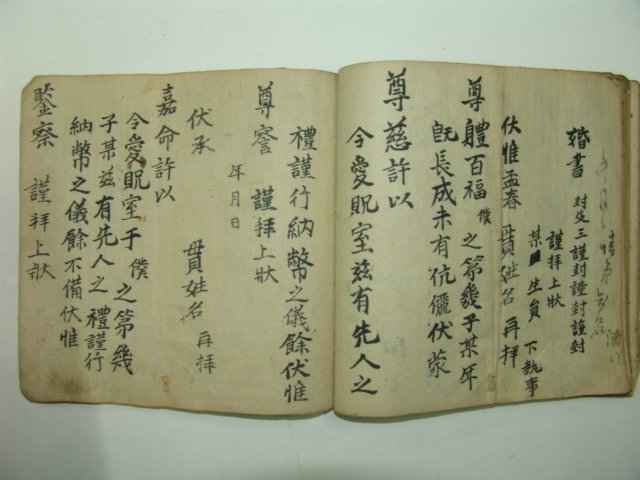 婚書 封處三謹封謹封謹封
謹拜上狀
某 生員 下執事
伏惟孟春 貫姓名 再拜
尊體百福 僕 之第幾子某年
旣長成未有伉儷伏蒙
尊慈許以
令愛貺室茲有先人之
禮謹行納幣之儀餘伏惟
尊 謹拜上狀
年月日
貫姓名 再拜
伏承
嘉命許以
令愛貺室于 僕 之第幾
子某茲有先人之禮謹行
納幣之儀餘不備伏惟
鑒察 謹拜上狀